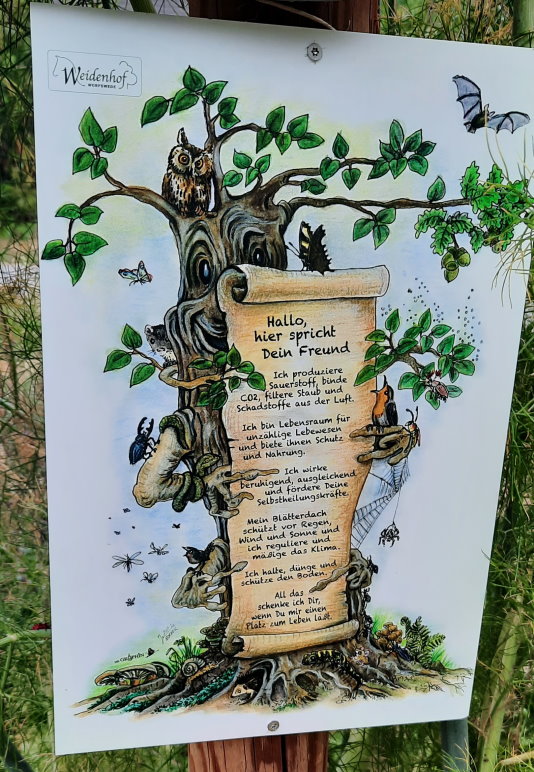 Weidenhof
WORPSWEDE
Hallo,
hier spricht
Dein Freund
Ich produziere
Sauerstoff, binde
CO2, filtere Staub und
Schadstoffe aus der Luft.
Ich bin Lebensraum für
unzählige Lebewesen
und biete ihnen Schutz
und Nahrung.
Ich wirke
beruhigend, ausgleichend
und fördere Deine
Selbstheilungskräfte.
Mein Blätterdach
schützt vor Regen,
Wind und Sonne und
ich reguliere und
mäßige das Klima.
Ich halte, dünge und
schütze den Boden.
All das
schenke ich Dir,
wenn Du mir einen
Platz zum Leben läßt.